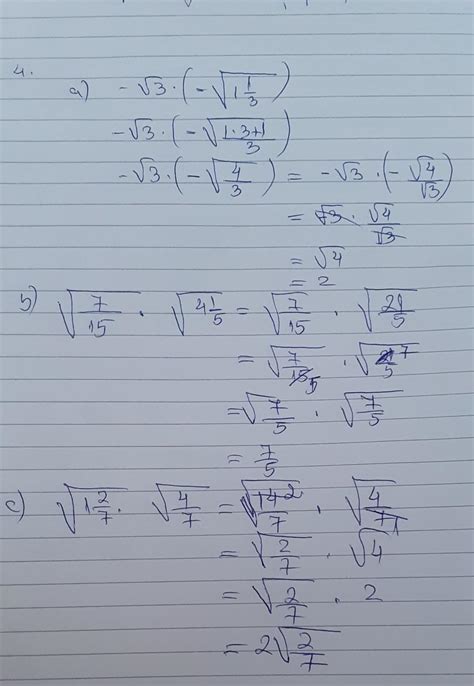 4.
a) -√3 · (-√(1 1/3))
-√3 · (-√((1·3+1)/3))
-√3 · (-√(4/3)) = -√3 · (-√4/√3)
= √3 · √4/√3
= √4
= 2
b) √(7/15) · √(4 1/5) = √(7/15) · √(21/5)
= √(7/15 5) · √(21 7/5)
= √(7/5) · √(7/5)
= 7/5
c) √(1 2/7) · √(4/7) = √(14 2/7) · √(4/7 1)
= √(2/7) · √4
= √(2/7) · 2
= 2√(2/7)